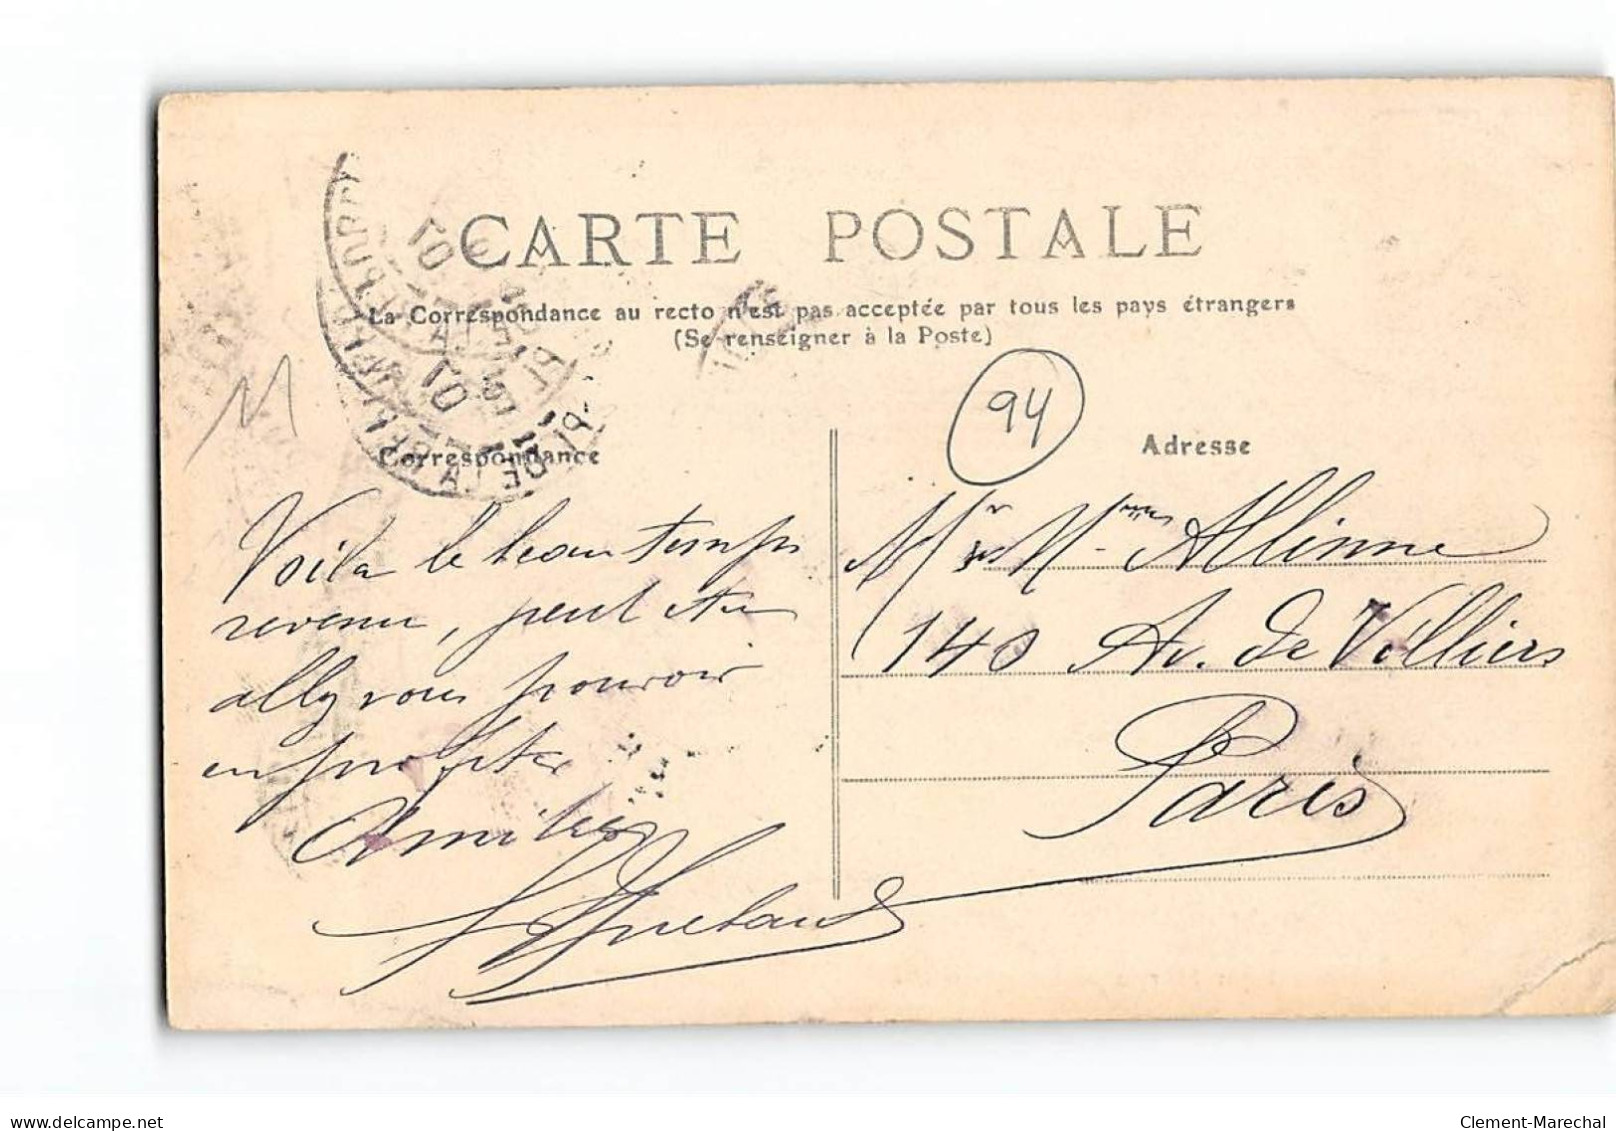 CARTE POSTALE
La Correspondance au recto n'est pas acceptée par tous les pays étrangers
(Se renseigner à la Poste)
M
94
Correspondance
Voila le beau temps
revenu, peut etre
allez vous pouvoir
en profiter
Amitiés
Adresse
Mr & Mme Allinne
140 Av. de Villiers
Paris
www.delcampe.net
Clement-Marechal